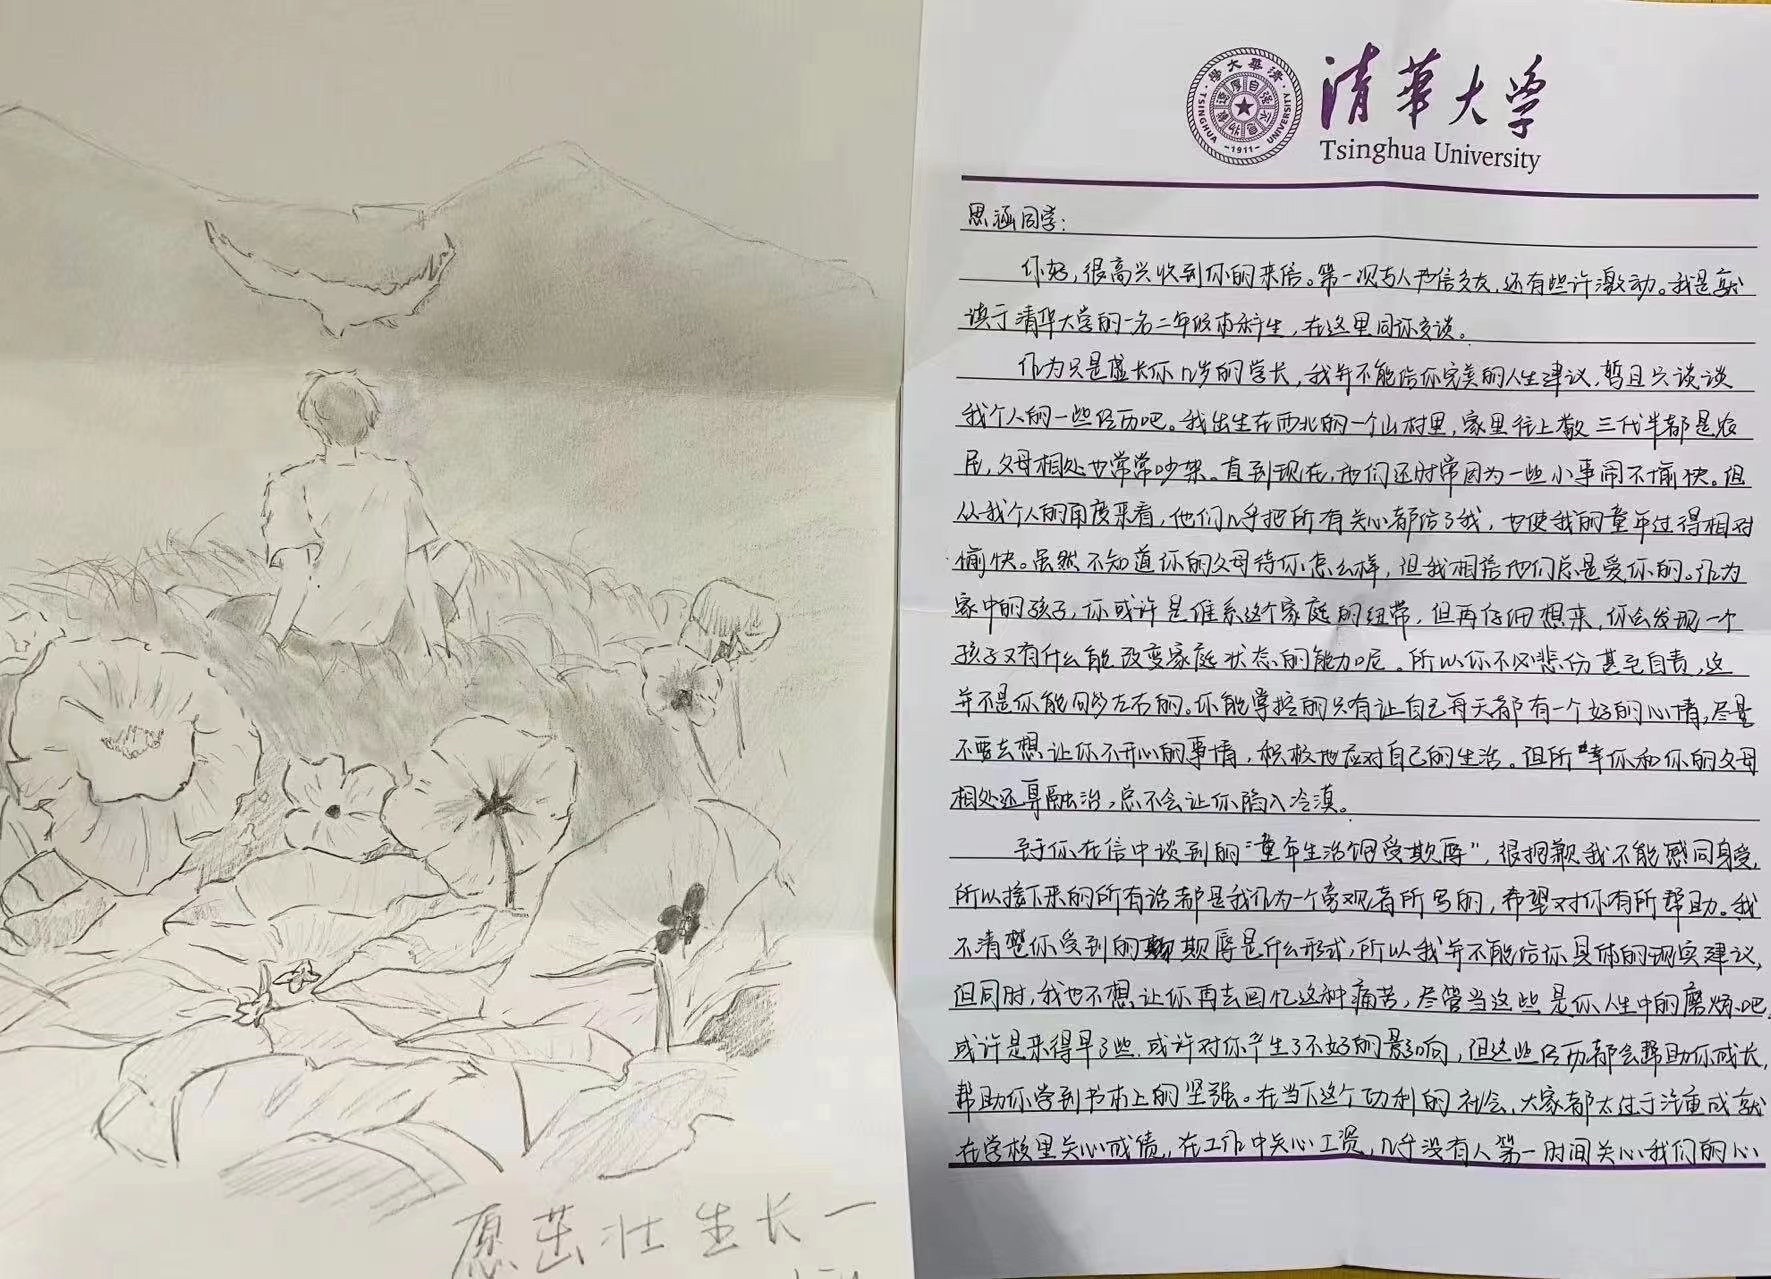 愿茁壮生长一
清華大学
Tsinghua University
清華大學
TSINGHUA UNIVERSITY
自强不息
厚德载物
-1911-
思涵同学：
你好，很高兴收到你的来信。第一次与人书信交友，还有些许激动。我是就
读于清华大学的一名二年级本科生，在这里同你交谈。
作为只是虚长你几岁的学长，我并不能给你完美的人生建议，暂且只谈谈
我个人的一些经历吧。我出生在西北的一个山村里，家里往上数三代半都是农
民，父母相处也常常吵架。直到现在，他们还时常因为一些小事闹不愉快。但
从我个人的角度来看，他们几乎把所有关心都给了我，也使我的童年过得相对
愉快。虽然不知道你的父母待你怎么样，但我相信他们总是爱你的。作为
家中的孩子，你或许是维系这个家庭的纽带，但再仔细想来，你会发现一个
孩子又有什么能改变家庭状态的能力呢。所以你不必悲伤甚至自责，这
并不是你能够左右的。你能掌控的只有让自己每天都有一个好的心情，尽量
不要去想让你不开心的事情，积极地应对自己的生活。但所幸你和你的父母
相处还算融洽，总不会让你陷入冷漠。
至于你在信中谈到的“童年生活饱受欺辱”，很抱歉我不能感同身受，
所以接下来的所有话都是我作为一个旁观者所写的，希望对你有所帮助。我
不清楚你受到的欺辱是什么形式，所以我并不能给你具体的现实建议，
但同时，我也不想让你再去回忆这种痛苦，尽管当这些是你人生中的磨炼吧，
或许是来得早了些，或许对你产生了不好的影响，但这些经历都会帮助你成长，
帮助你学到书本上的坚强。在当下这个功利的社会，大家都太过于注重成就
在学校里关心成绩，在工作中关心工资，几乎没有人第一时间关心我们的心